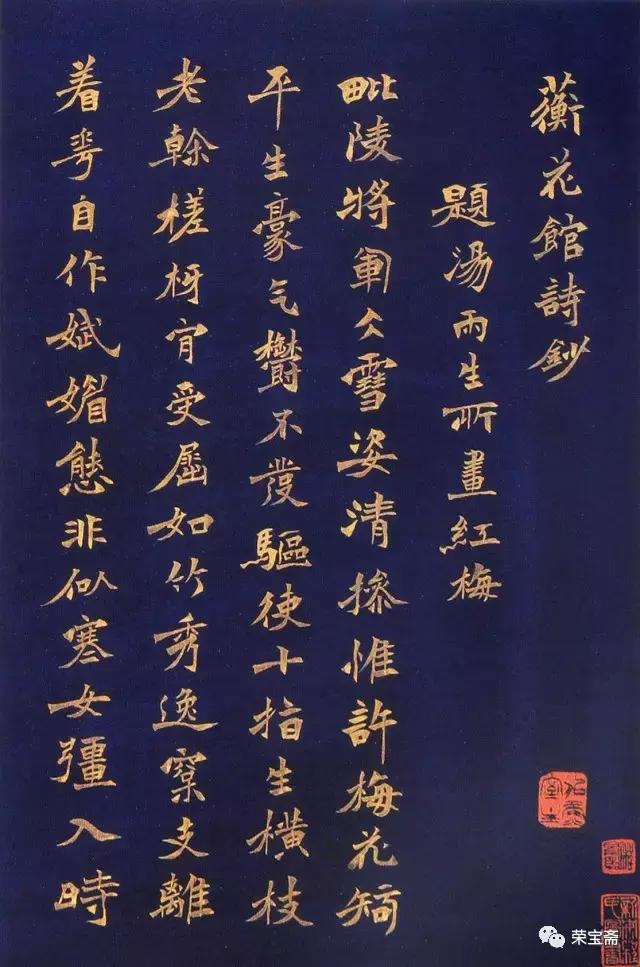 蘅花館詩鈔
題湯雨生所畫紅梅
毗陵將軍仌雪姿清摻惟許梅花知
平生豪气鬱不發驅使十指生橫枝
老榦槎枒肎受屈如竹秀逸㮤支離
着𠌶自作娬媚態非似寒女彊入時
荣宝斋